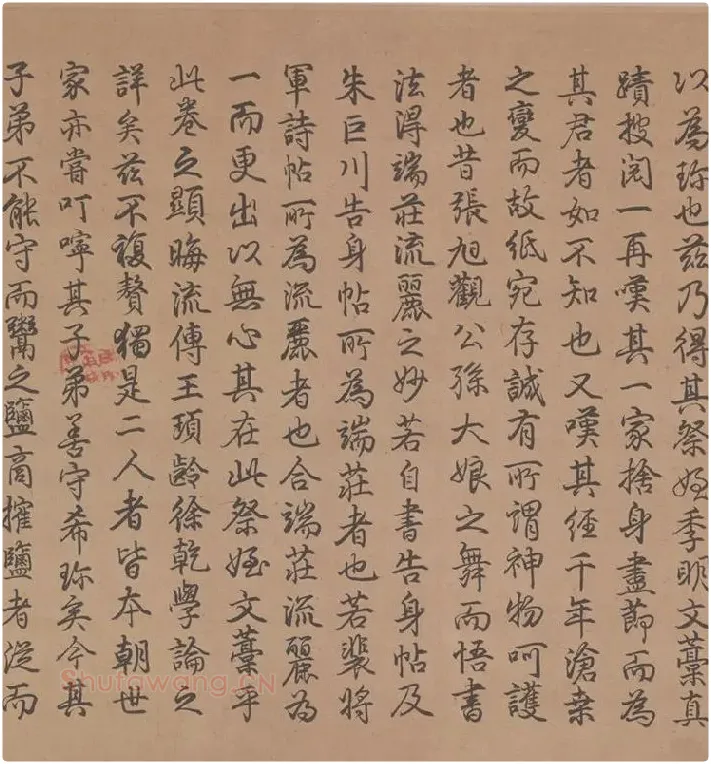 以為珎也茲乃得其祭姪季明文藁真
蹟披閱一再嘆其一家捨身盡節而為
其君者如不知也又嘆其經千年滄桒
之變而故紙宛存誠有所謂神物呵護
者也昔張旭觀公孫大娘之舞而悟書
法得端莊流麗之妙若自書告身帖及
朱巨川告身帖所為端莊者也若裴將
軍詩帖所為流麗者也合端莊流麗為
一而更出以無心其在此祭姪文藁乎
此卷之顯晦流傳王頊齡徐乾學論之
詳矣茲不複贅獨是二人者皆本朝世
家亦嘗叮嚀其子弟善守希珎矣今其
子弟不能守而鬻之鹽商擁鹽者從而
Shufawang.CN